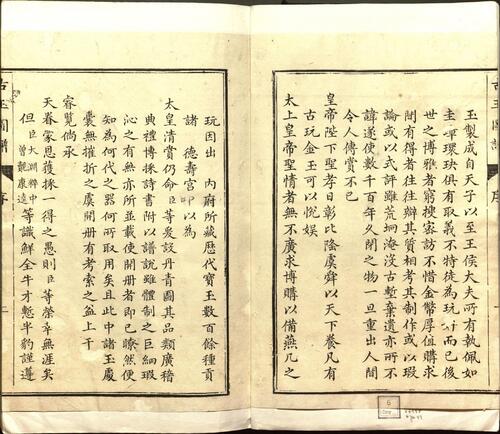 玉製成自天子以至王侯大夫所有執佩如
圭璋環玦俱有取義不特徒為玩好而已後
世之博雅者窮搜客訪不惜金幣厚值購求
間有得者往往辦其質相考其制作或以瑕
論或以式評雖荒坰海沒古塹棄遺亦所不
諱遂使數千百年久閉之物一旦重出人間
令人傳賞不已
皇帝陛下聖孝日彰比隆虞舜以天下養凡有
古玩金玉可以悅娱
太上皇帝聖情者無不廣求博購以備燕几之
玩因出 內府所藏歷代寶玉數百餘種貢
諸 德壽宮以為
太皇清賞仍命臣等爰設丹青圖其品類廣稽
典禮博採詩書附以譜說雖體制之巨細瑕
沁之有無亦所並載使開册者即已瞭然便
知為何代之器何所取用矣且此中諸玉處
囊無摧折之虞開册有考索之益上干
睿覽倘承
天眷家恩獲採一得之愚則臣等榮幸無涯矣
但臣大淵釋中曾覿康遠等識鮮全牛才慙半豹謹遵
古玉圖譜 序 二
古玉圖譜 序
6